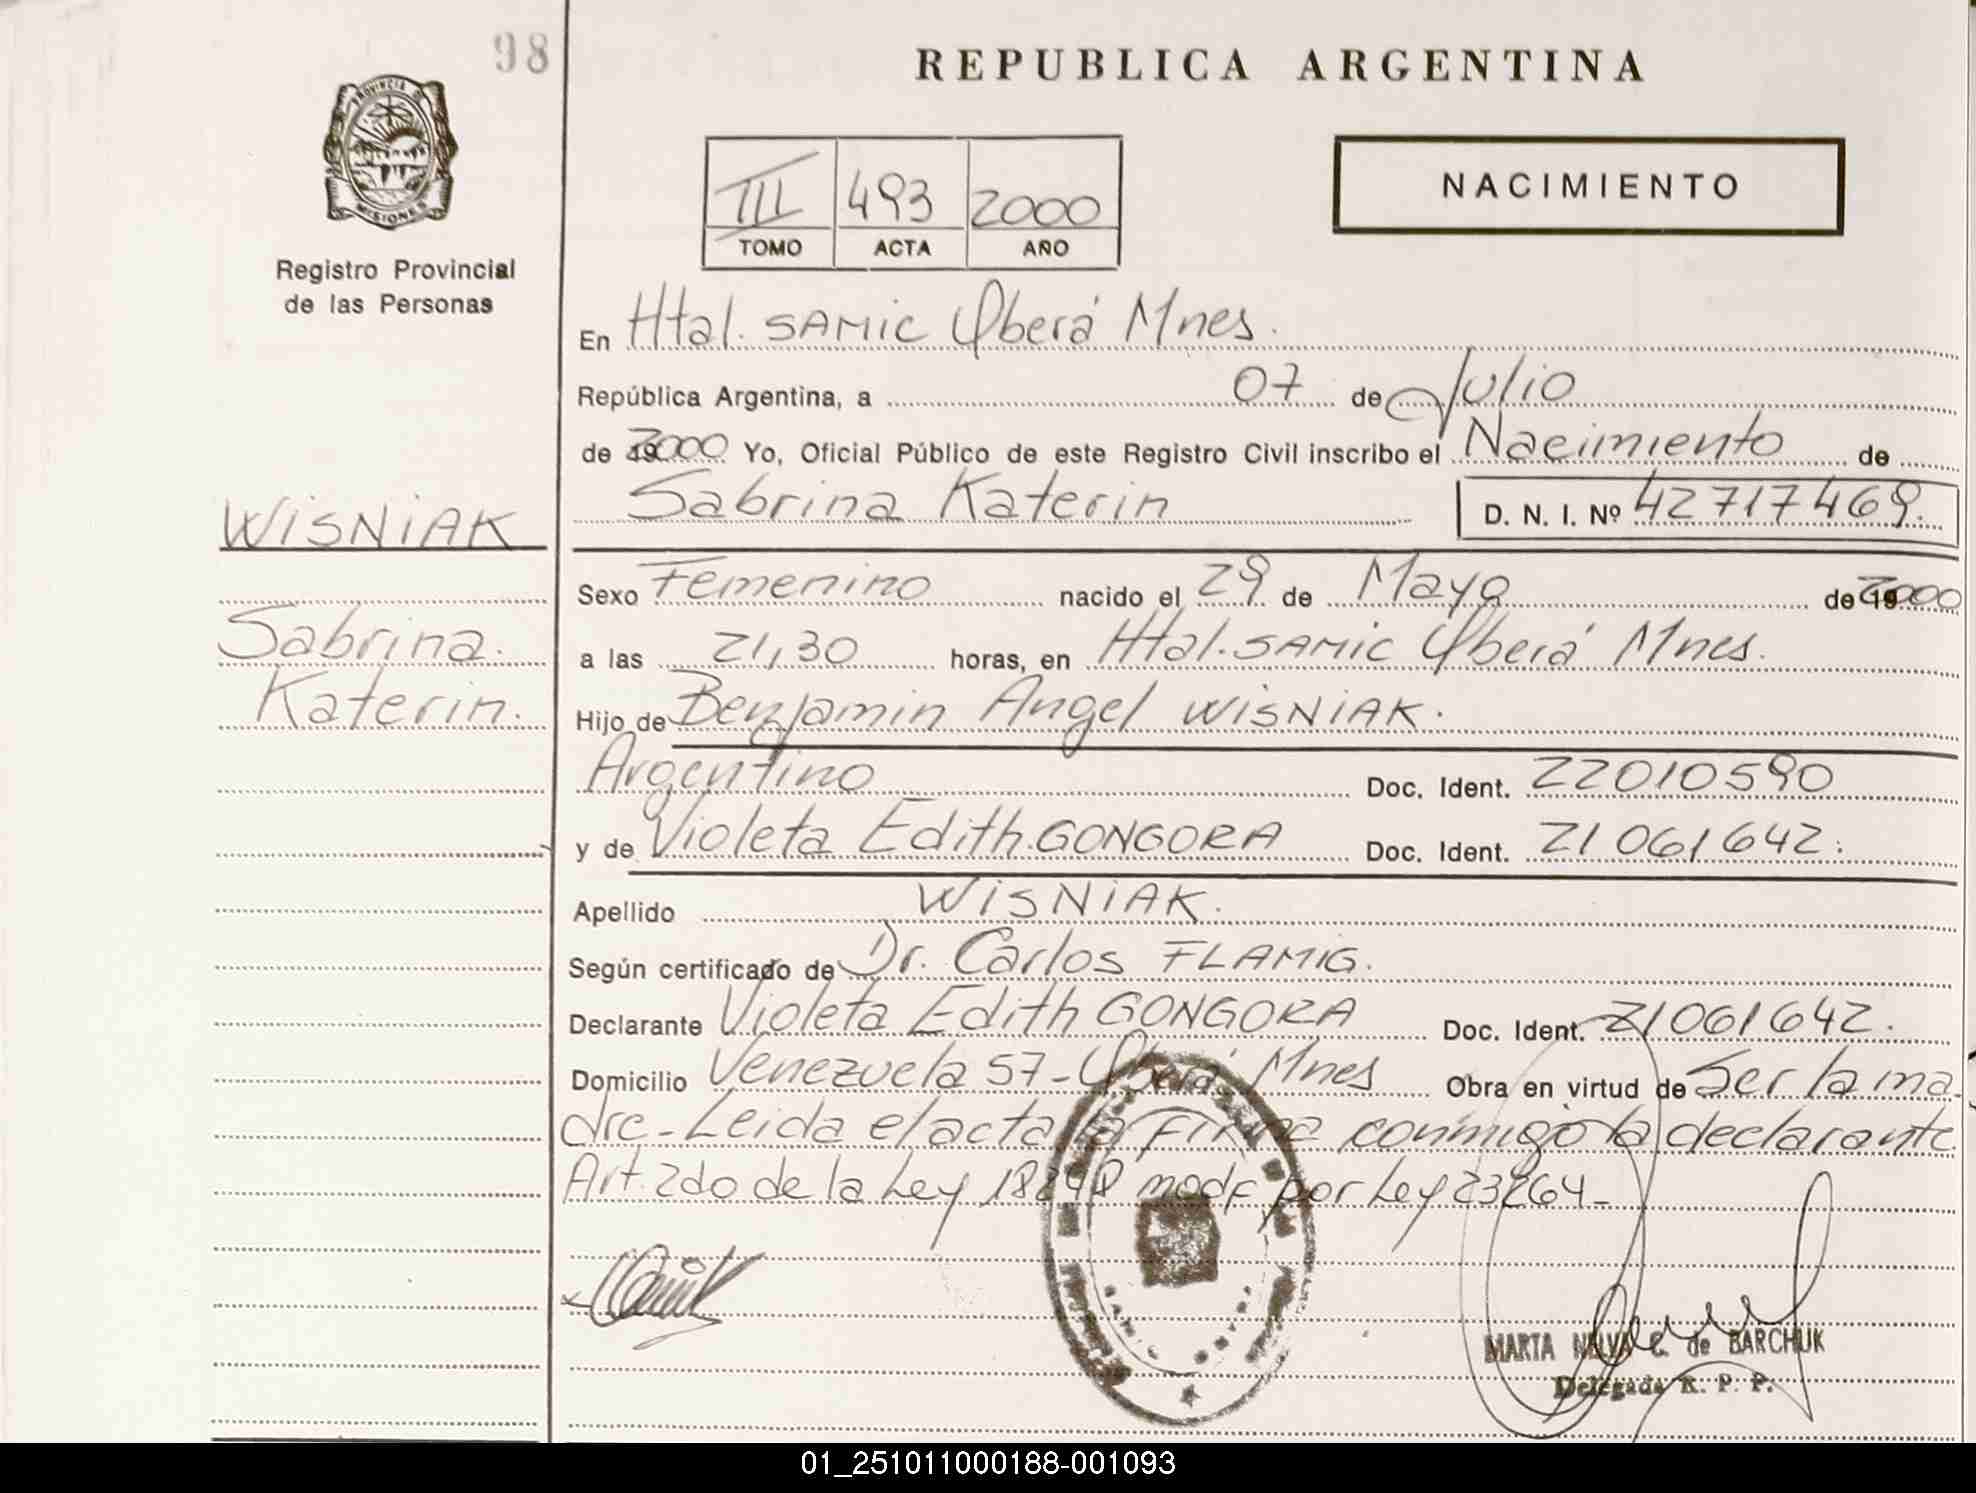 98
REPUBLICA ARGENTINA
PROVINCIA D
MISIONES
Registro Provincial
de las Personas
III 493 2000
TOMO ACTA AÑO
NACIMIENTO
En Htal. SAMIC Oberá Mnes.
República Argentina, a 07 de Julio
de 2000 Yo, Oficial Público de este Registro Civil inscribo el Nacimiento de
Sabrina Katerin D. N. I. Nº 42717469.
WISNIAK
Sabrina.
Katerin.
Sexo Femenino nacido el 29 de Mayo de 2000
a las 21,30 horas, en Htal. SAMIC Oberá Mnes.
Hijo de Benjamin Angel WISNIAK.
Argentino Doc. Ident. 22010590
y de Violeta Edith GONGORA Doc. Ident. 21061642.
Apellido WISNIAK.
Según certificado de Dr. Carlos FLAMIG.
Declarante Violeta Edith GONGORA Doc. Ident. 21061642.
Domicilio Venezuela 57 - Oberá Mnes Obra en virtud de Ser la ma
dre - Leida el acta la firma conmigo la declarante
Art. 2do de la Ley 18248 modf por Ley 23264 -
MARTA NELVA C. de BARCHUK
Delegada R. P. P.
01_251011000188-001093